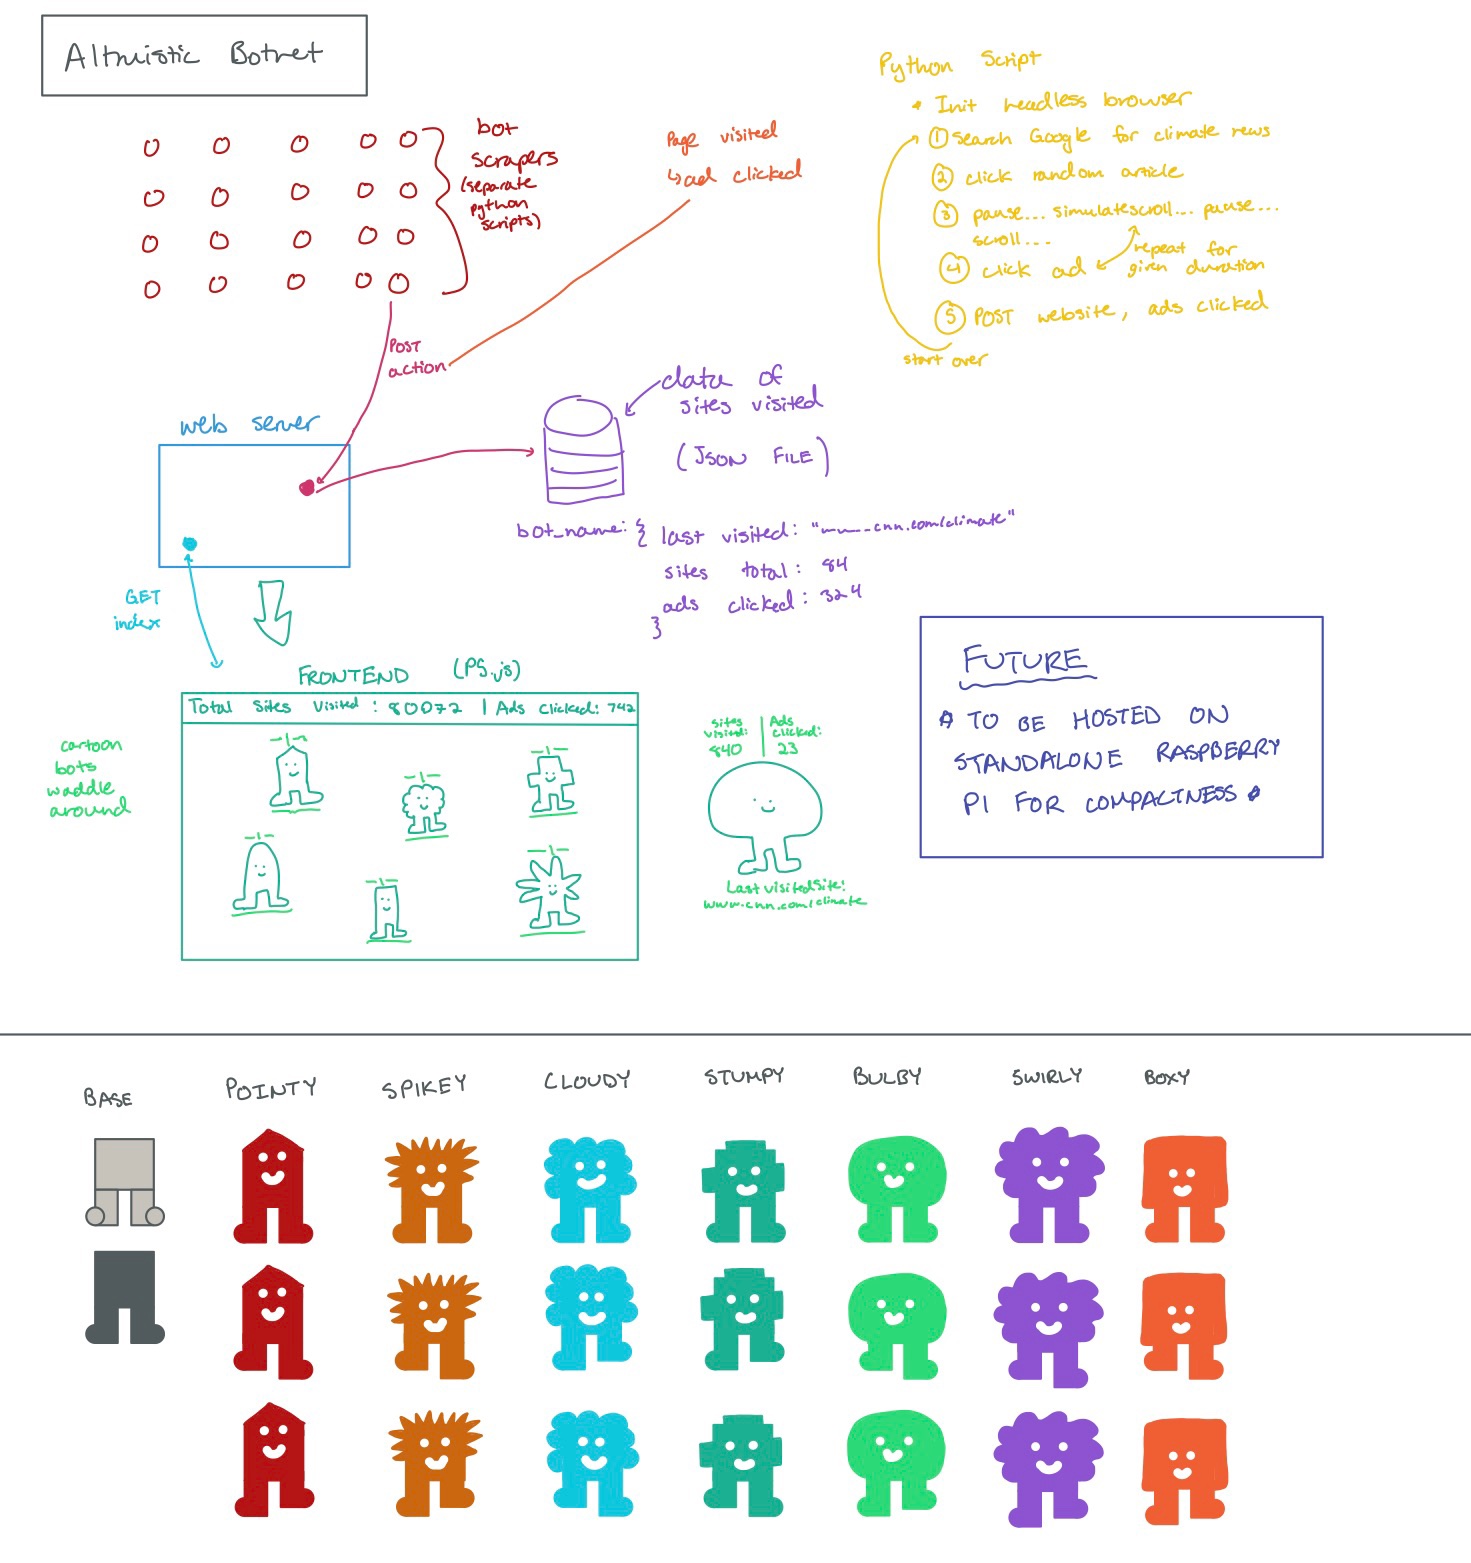 Altruistic Botnet
bot
scrapers
(separate
python
scripts)
Page visited
↳ ad clicked
POST
action
Python Script
* Init headless browser
① Search Google for climate news
② click random article
③ pause... simulate scroll... pause...
scroll...
④ click ad
repeat for
given duration
⑤ POST website, ads clicked
start over
web server
data of
sites visited
(JSON FILE)
bot_name: { last visited: "www.cnn.com/climate"
sites total: 84
ads clicked: 324
}
GET
index
FRONTEND (P5.js)
Total Sites Visited: 80072 | Ads Clicked: 742
cartoon
bots
waddle
around
sites visited: 840 | Ads clicked: 23
Last visited Site:
www.cnn.com/climate
FUTURE
* TO BE HOSTED ON
STANDALONE RASPBERRY
PI FOR COMPACTNESS *
BASE
POINTY
SPIKEY
CLOUDY
STUMPY
BULBY
SWIRLY
BOXY